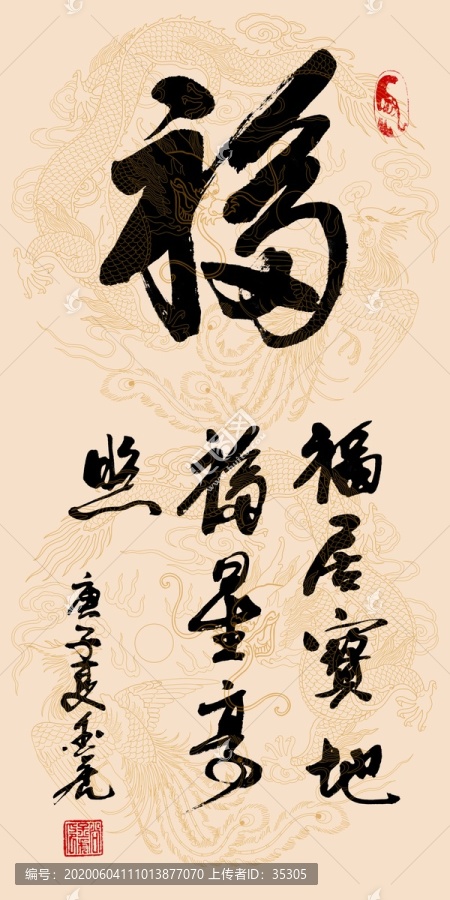 福
福居寳地
福星高
照
庚子夏
编号：20200604111013877070 上传者ID：35305